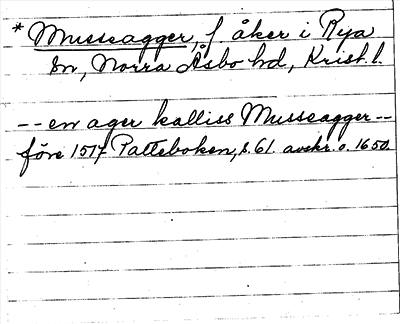 * Musseagger, f. åker i Rya
sn, Norra Åsbo hd, Krist. l.
-- en ager kalliss Musseagger --
före 1517 Palteboken, s. 61. avskr. o. 1650.